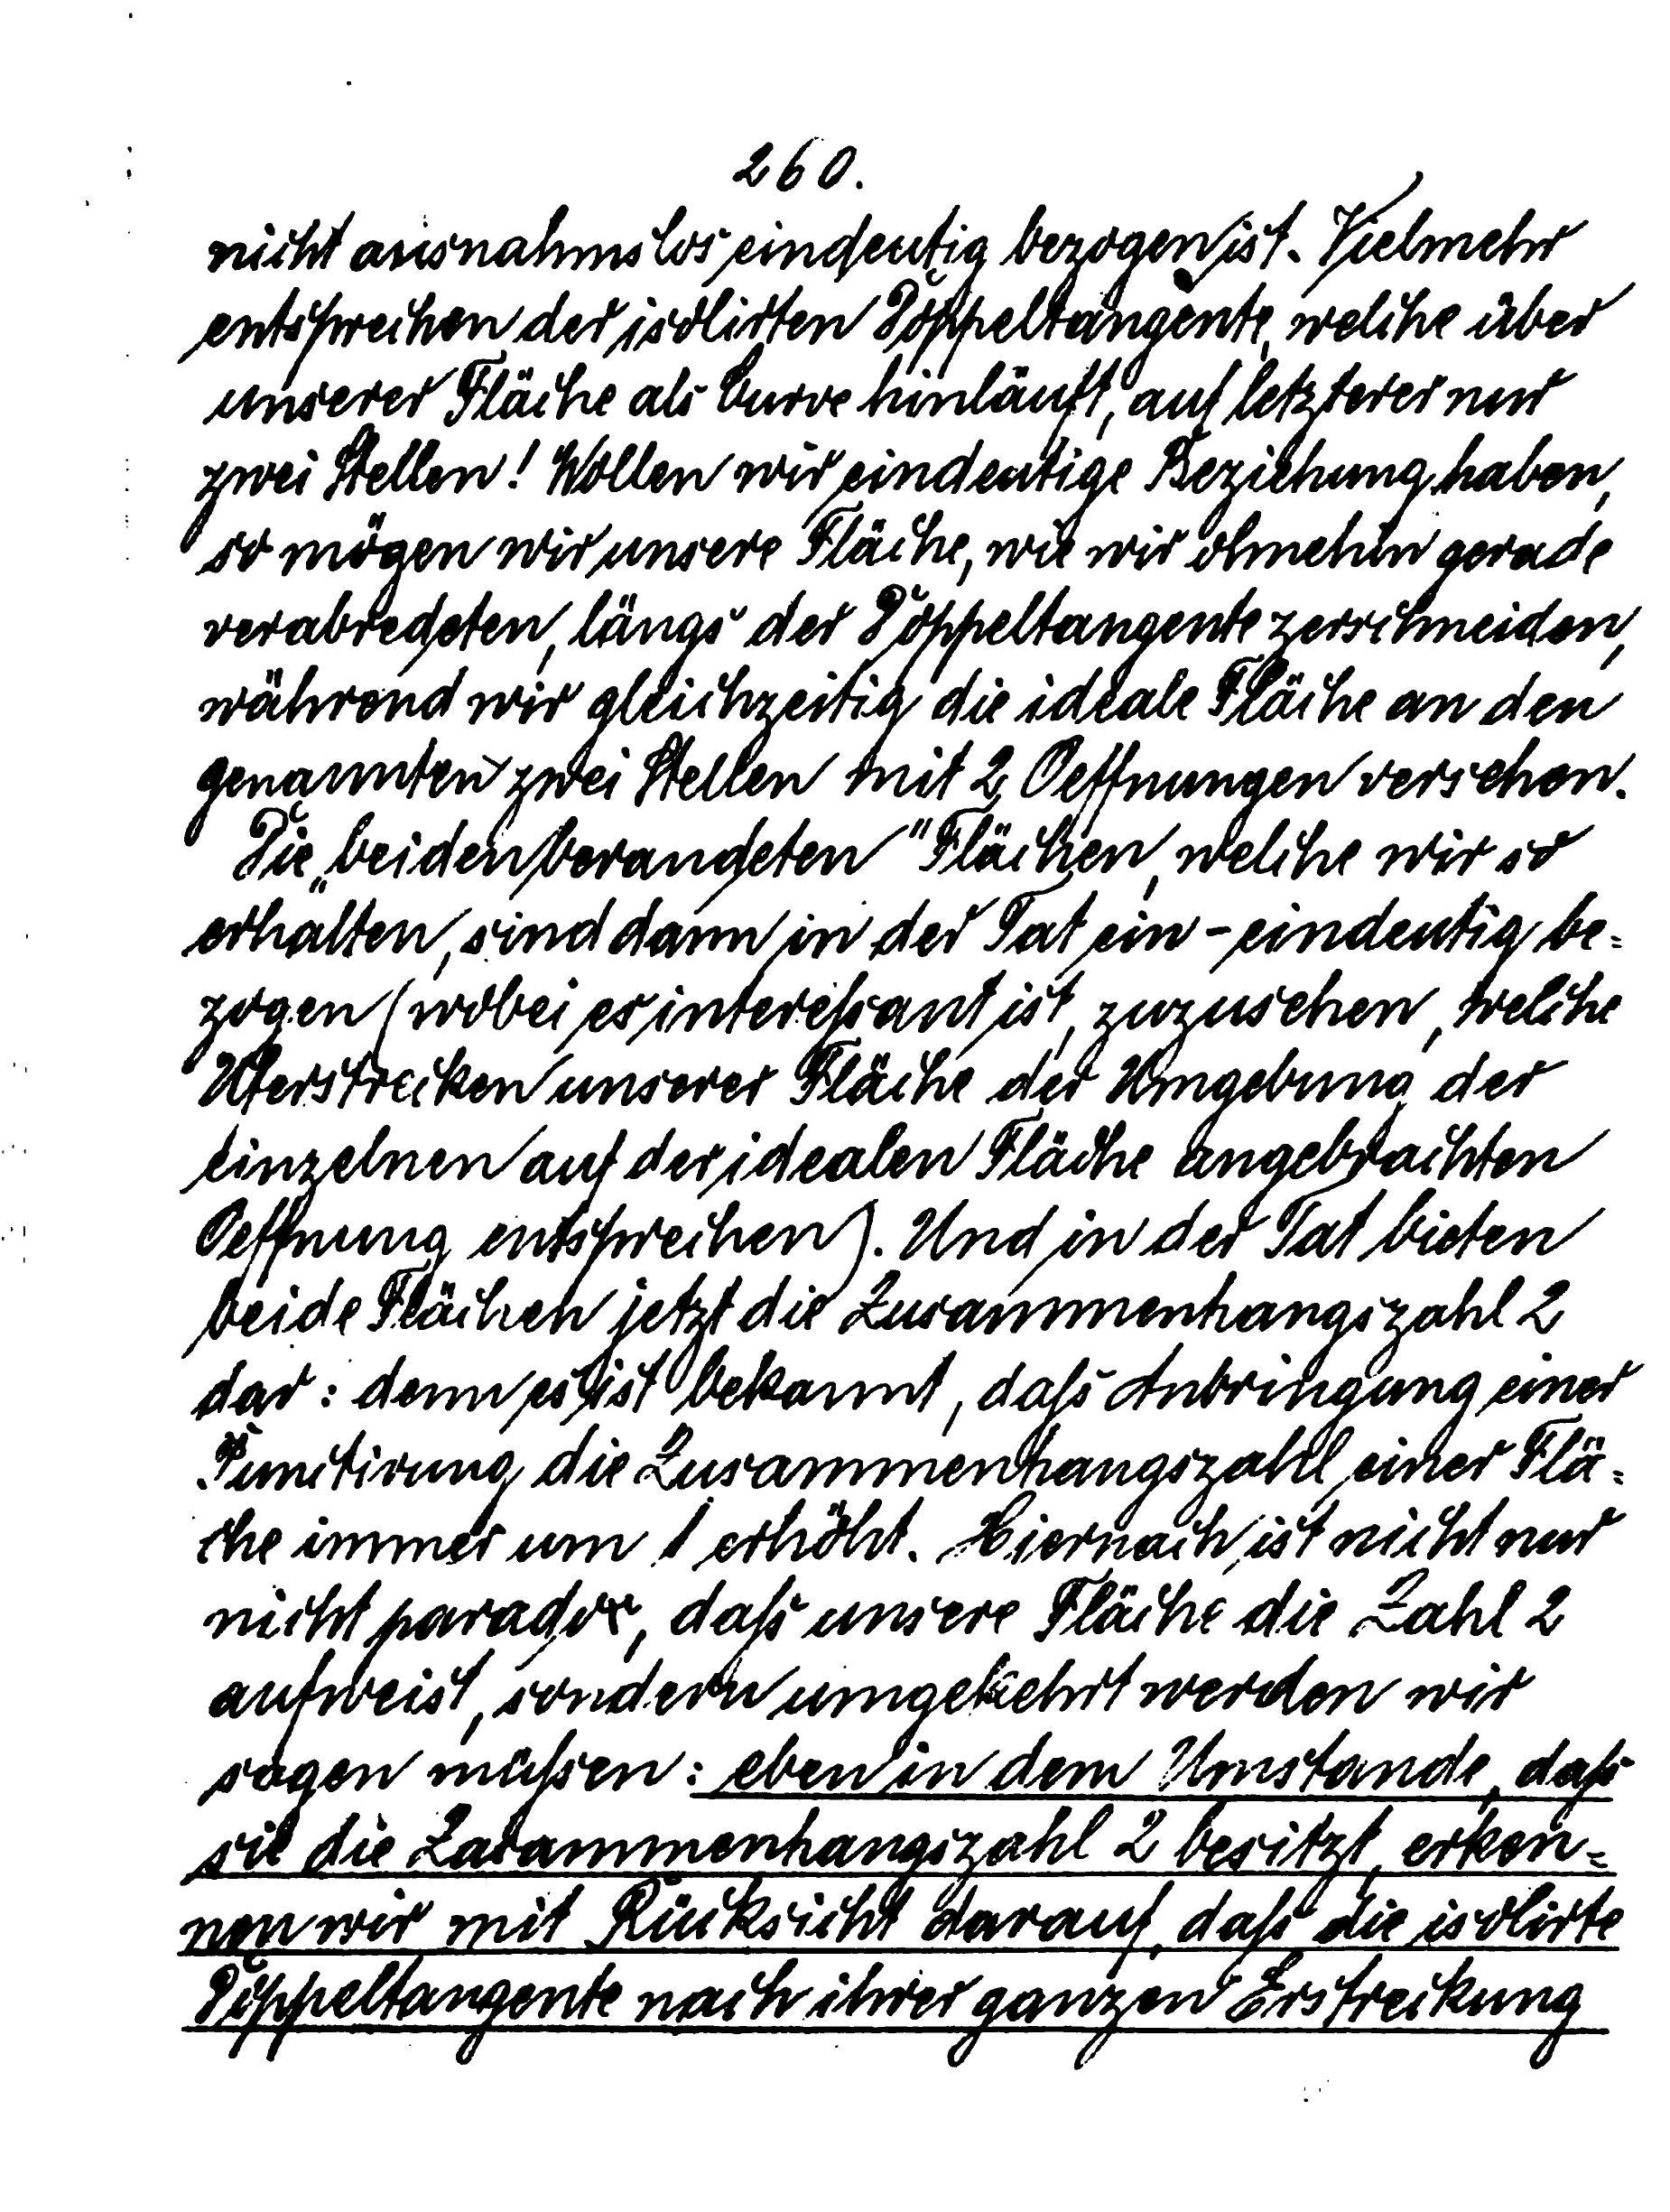 260.
nicht ausnahmslos eindeutig bezogen ist. Vielmehr
entsprechen der isolirten Doppeltangente, welche über
unserer Fläche als Curve hinläuft, auf letzterer nur
zwei Stellen! Wollen wir eindeutige Beziehung haben,
so mögen wir unsere Fläche, wie wir ohnehin gerade
verabredeten, längs der Doppeltangente zerschneiden,
während wir gleichzeitig die ideale Fläche an den
genannten zwei Stellen mit 2 Oeffnungen versehen.
Die „beiden berandeten" Flächen, welche wir so
erhalten, sind dann in der Tat ein-eindeutig be-
zogen (wobei es interessant ist, zuzusehen, welche
Uferstrecken unserer Fläche der Umgebung der
einzelnen auf der idealen Fläche angebrachten
Oeffnung entsprechen). Und in der Tat bieten
beide Flächen jetzt die Zusammenhangszahl 2
dar: denn es ist bekannt, dass Anbringung einer
Punctirung die Zusammenhangszahl einer Flä-
che immer um 1 erhöht. Hiernach ist nicht nur
nicht paradox, dass unsere Fläche die Zahl 2
aufweist, sondern umgekehrt werden wir
sagen müssen: eben in dem Umstande, dass
sie die Zusammenhangszahl 2 besitzt, erken-
nen wir mit Rücksicht darauf, dass die isolirte
Doppeltangente nach ihrer ganzen Erstreckung